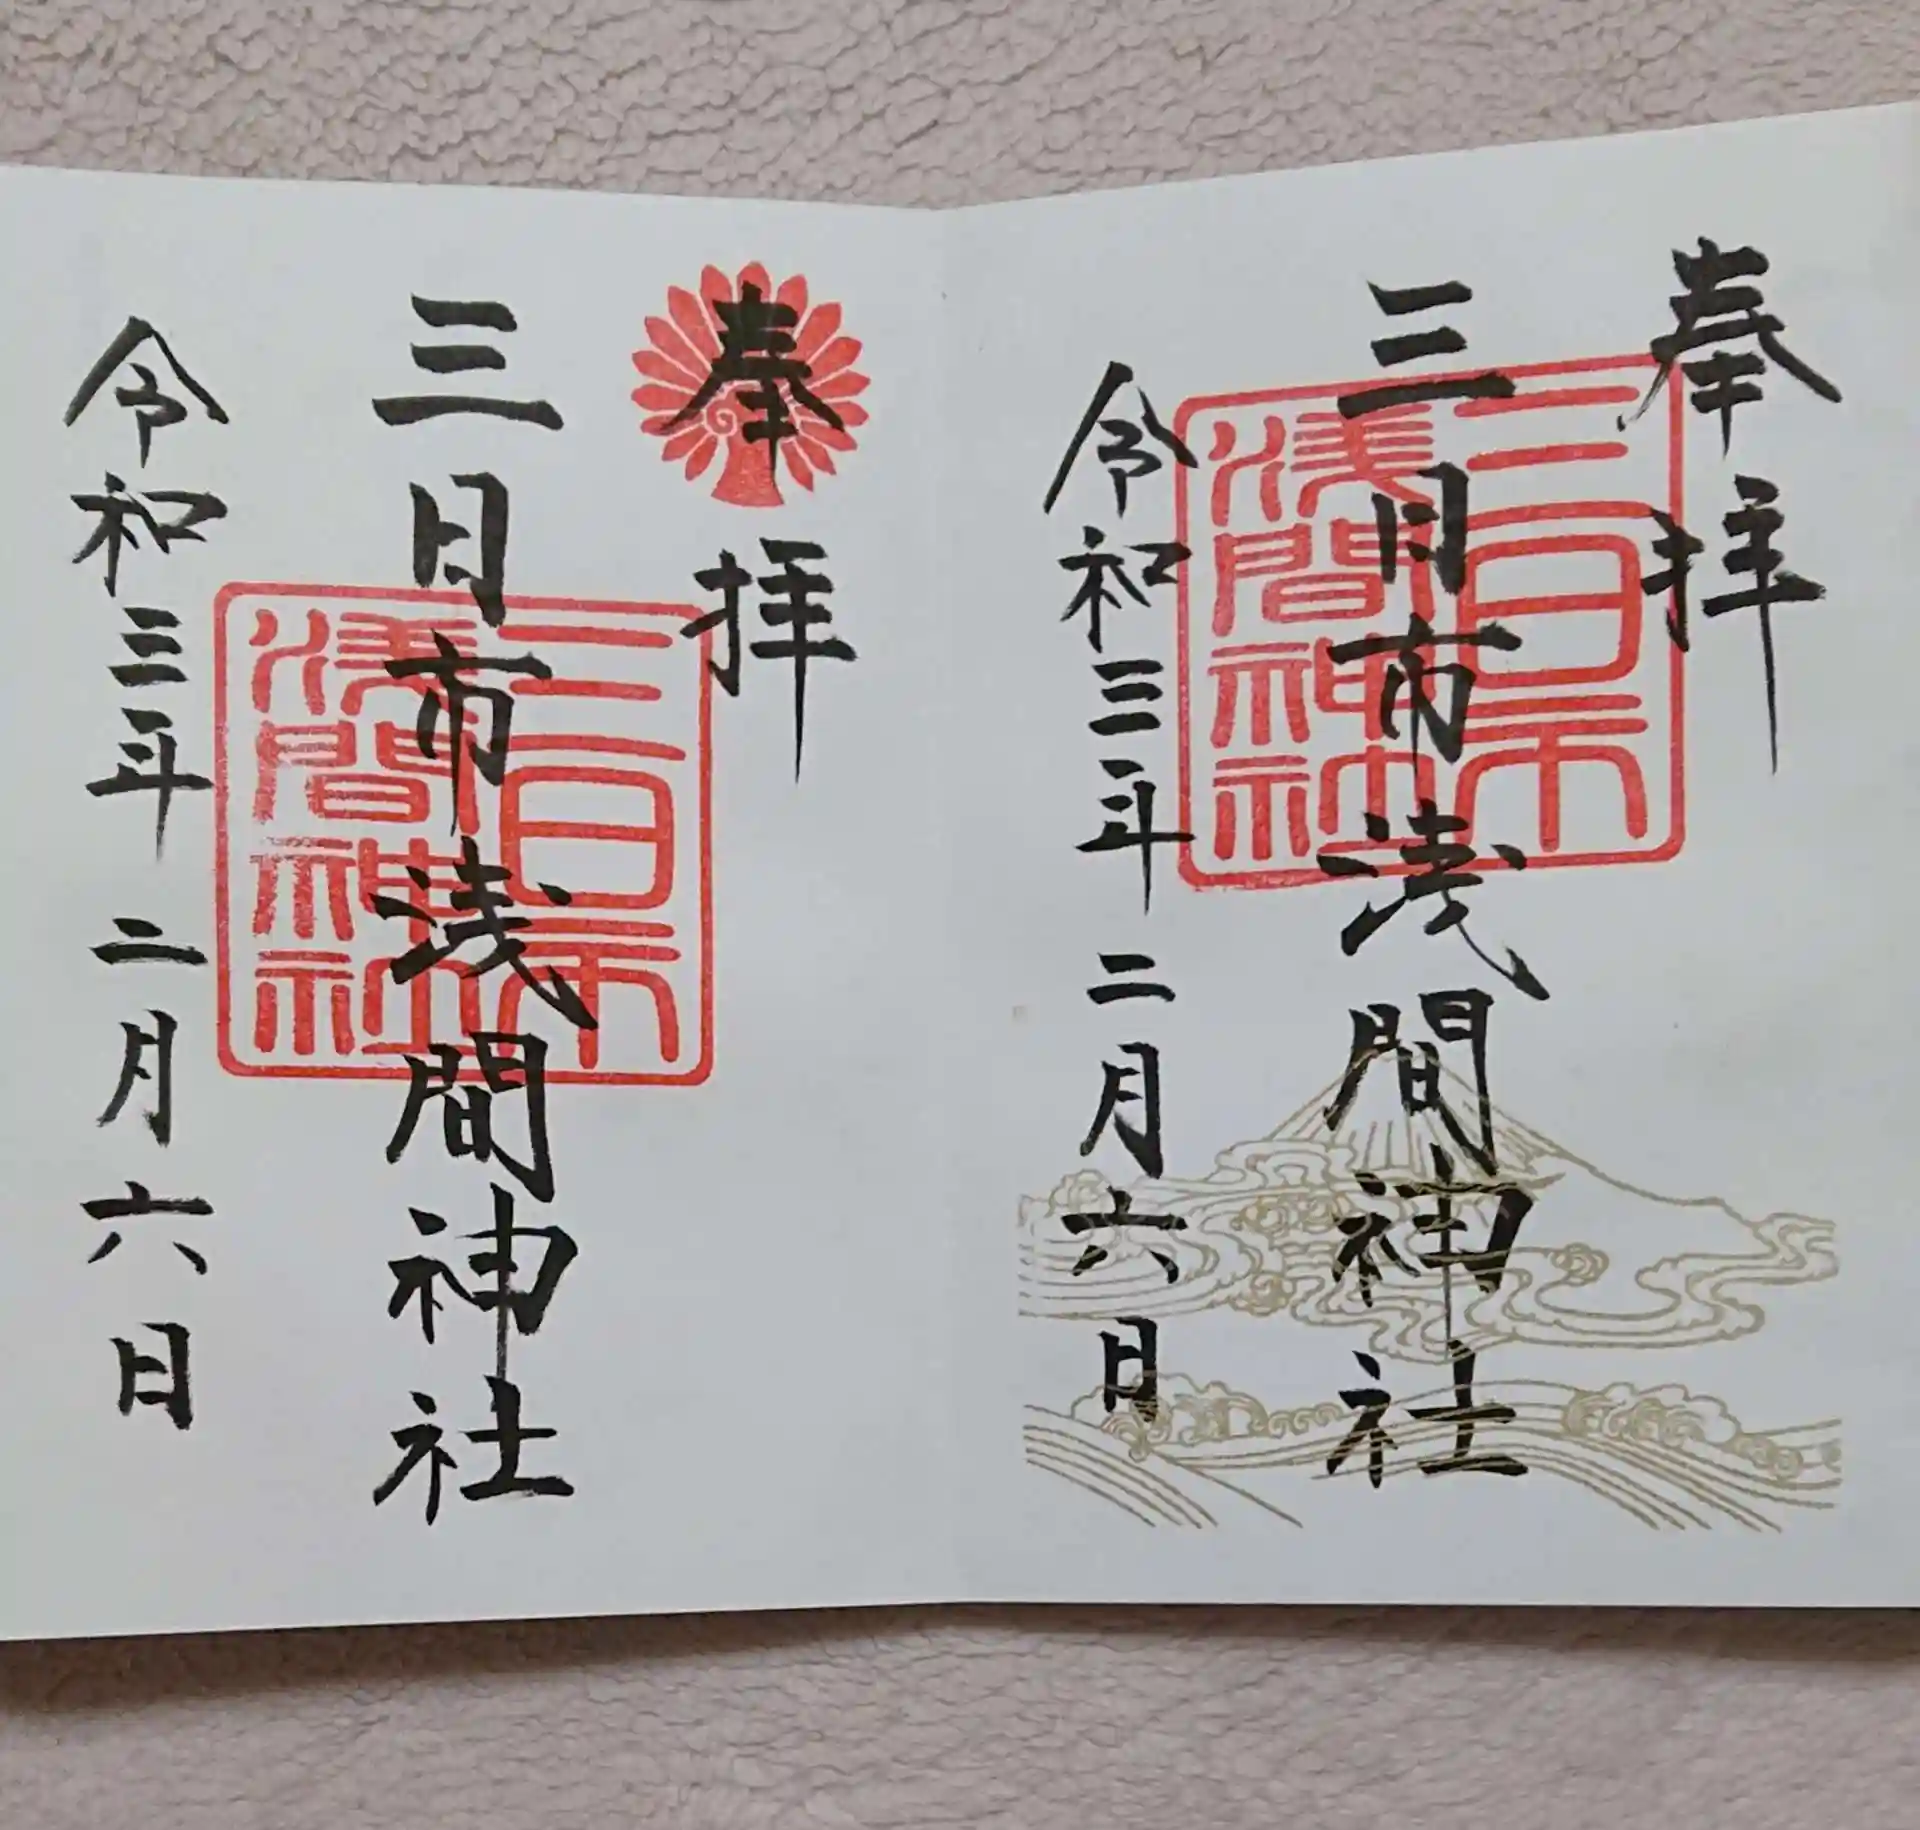 奉拝
三日市浅間神社
令和三年二月六日
三日市
浅間神社
奉拝
三日市浅間神社
令和三年二月六日
三日市
浅間神社